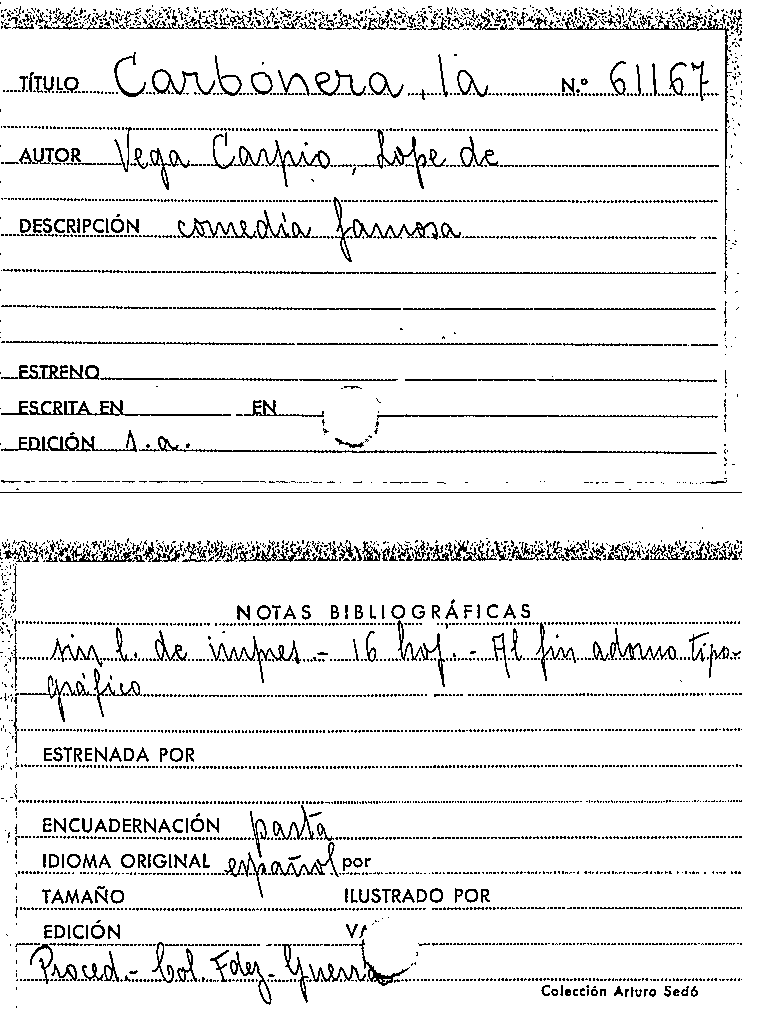 TÍTULO Carbonera, la N.º 61167
AUTOR Vega Carpio, Lope de
DESCRIPCIÓN comedia famosa
ESTRENO
ESCRITA EN EN
EDICIÓN s.a.
NOTAS BIBLIOGRÁFICAS
sin l. de impres.- 16 hoj.- Al fin adorno tipo-
gráfico
ESTRENADA POR
ENCUADERNACIÓN pasta
IDIOMA ORIGINAL español por
TAMAÑO ILUSTRADO POR
EDICIÓN
Proced.- Col. Fdez-Guerra
Colección Arturo Sedó